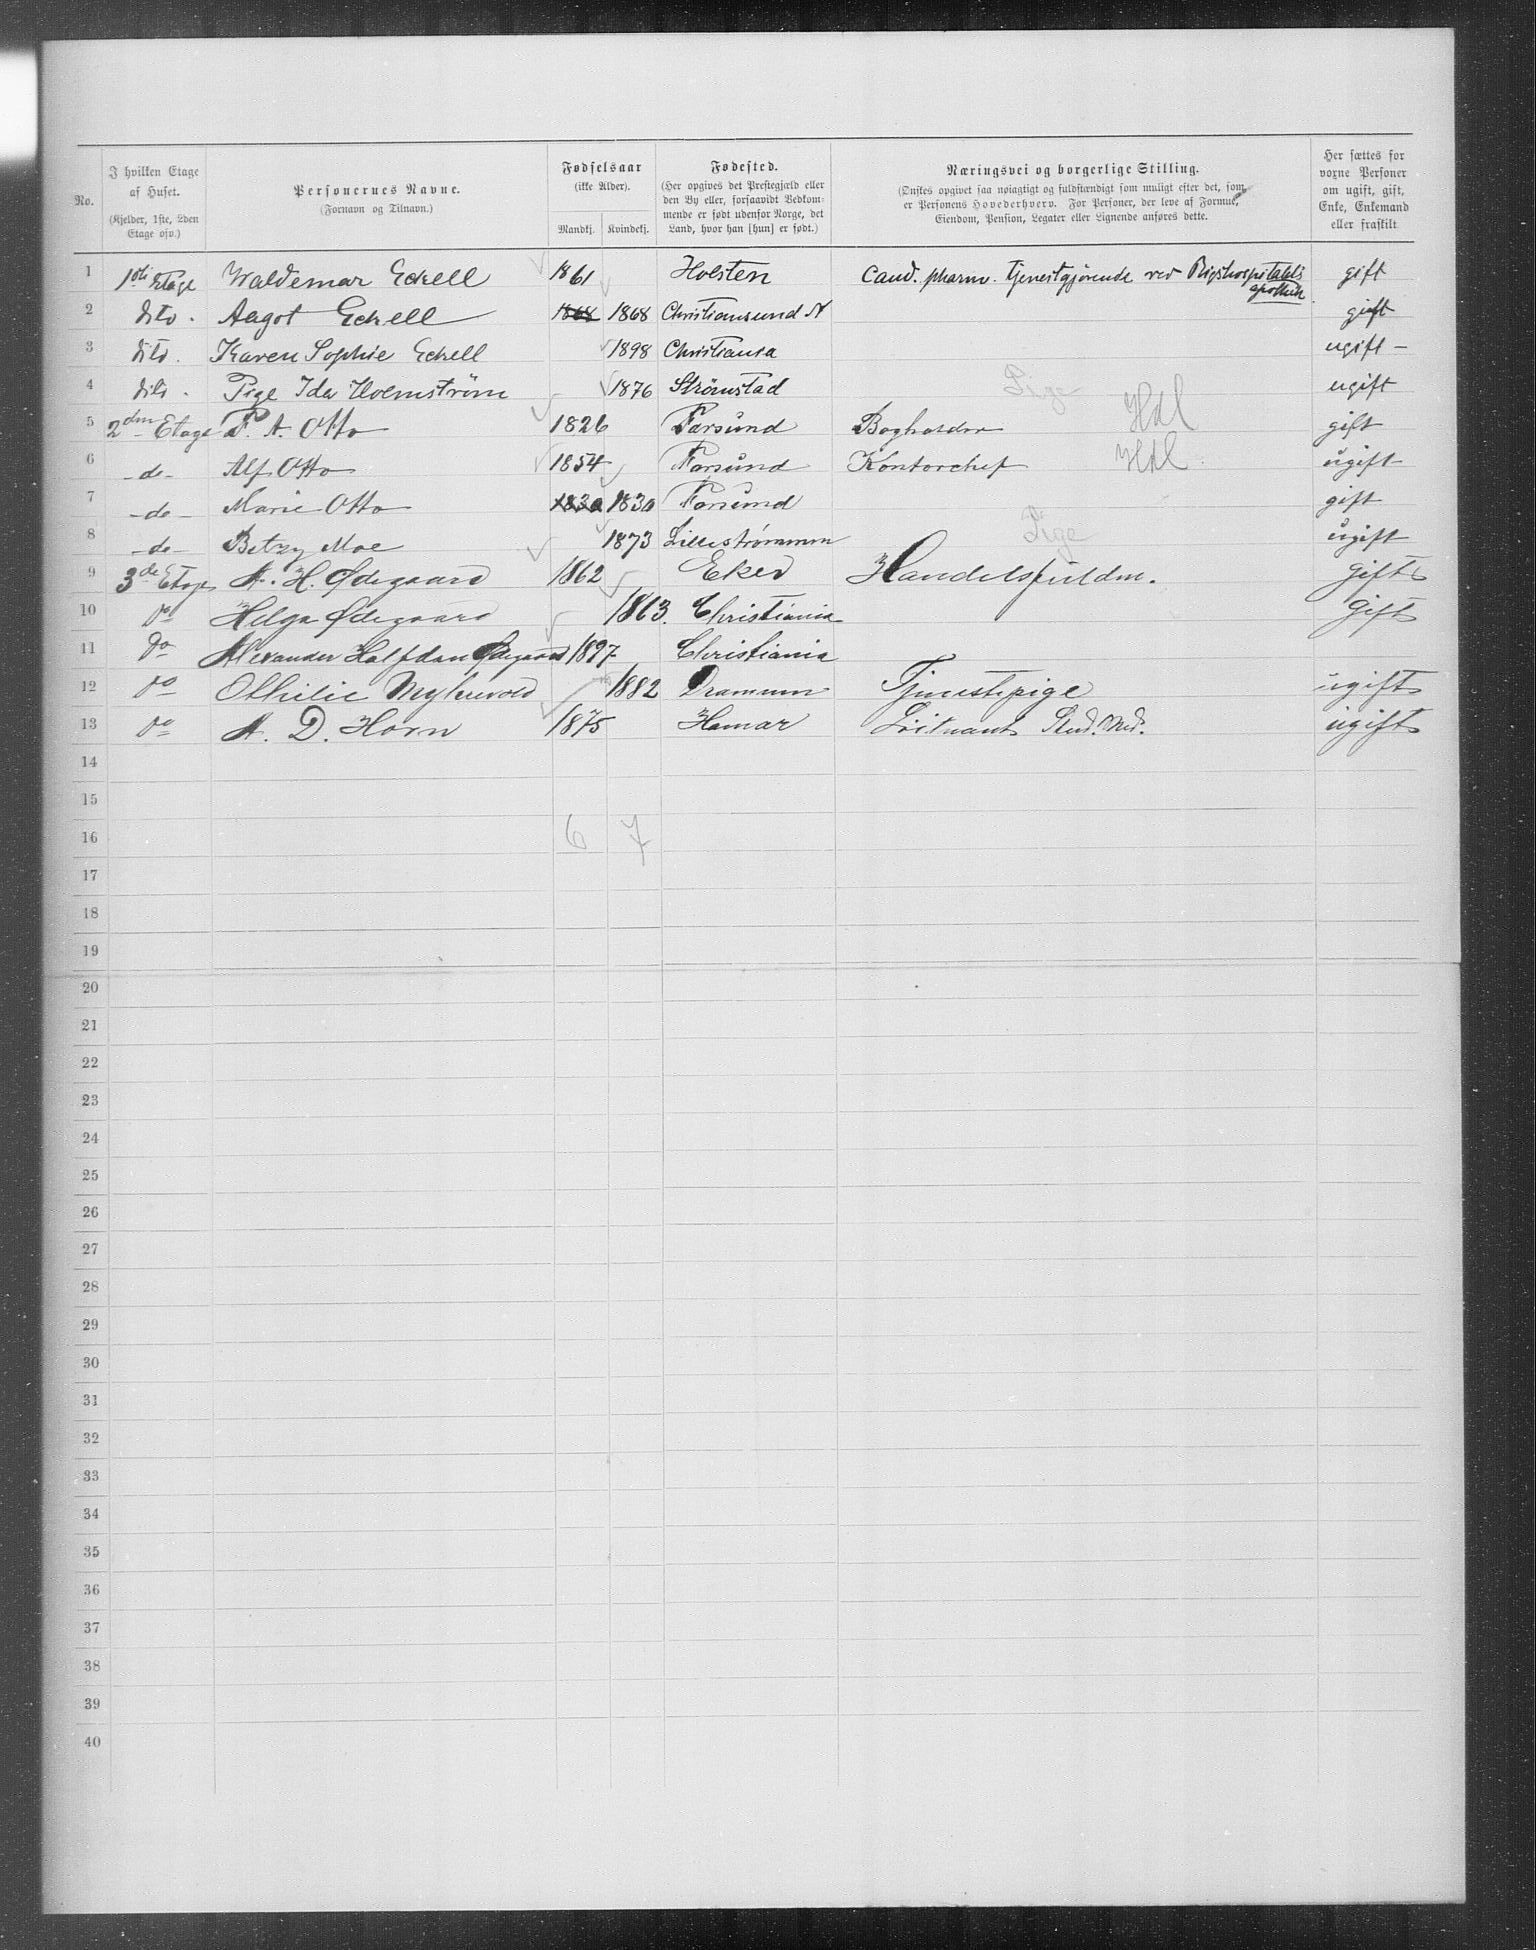 No.
I hvilken Etage af Huset. (Kjelder, 1ste, 2den Etage osv.)
Personernes Navne. (Fornavn og Tilnavn.)
Fødselsaar (ikke Alder). Mandkj. Kvindekj.
Fødested. (Her opgives det Prestegjæld eller den By eller, forsaavidt Vedkommende er født udenfor Norge, det Land, hvor han [hun] er født.)
Næringsvei og borgerlige Stilling. (Ønskes opgivet saa nøiagtigt og fuldstændigt som muligt efter det, som er Personens Hovederhverv. For Personer, der leve af Formue, Eiendom, Pension, Legater eller Lignende anføres dette.
Her sættes for voxne Personer om ugift, gift, Enke, Enkemand eller fraskilt
1 1ste Etage Waldemar Eckell 1861 Holsten Cand. pharm. tjenestgjørende ved Rigshospitalets apothek gift
2 dito. Aagot Eckell 1868 1868 Christiansund N gift
3 dito. Karen Sophie Eckell 1898 Christiania ugift -
4 dito. Pige Ida Holmström 1876 Strömstad Pige ugift
5 2den Etage P. A. Otto 1826 Farsund Bogholder Hdl gift
6 - do - Alf Otto 1854 Farsund Kontorchef Hdl ugift
7 - do - Marie Otto 1830 1830 Farsund gift
8 - do - Betzy Moe 1873 Lillestrømmen Pige ugift
9 3de Etage A. H. Ødegaard 1862 Eker Handelsfuldm. gift
10 Do Helga Ødegaard 1863. Christiania gift
11 Do Alexander Halfdan Ødegaard 1897 Christiania
12 Do Othilie 1882 Drammen Tjenestepige ugift
13 Do A. D. Horn 1875 Hamar Løitnant Stud. Med. ugift
14
15
16 6 7
17
18
19
20
21
22
23
24
25
26
27
28
29
30
31
32
33
34
35
36
37
38
39
40